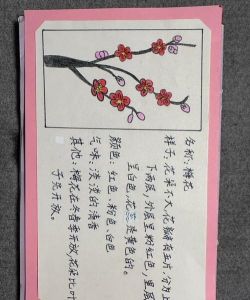 名称:梅花
样子:花朵不大,花瓣有五片,分为上
下两层,外层呈粉红色,里层
呈白色,花蕊是黄色的。
颜色:红色、粉色、白色
气味:淡淡的清香
其他:梅花在冬春季开放,花朵比叶
子先开放。